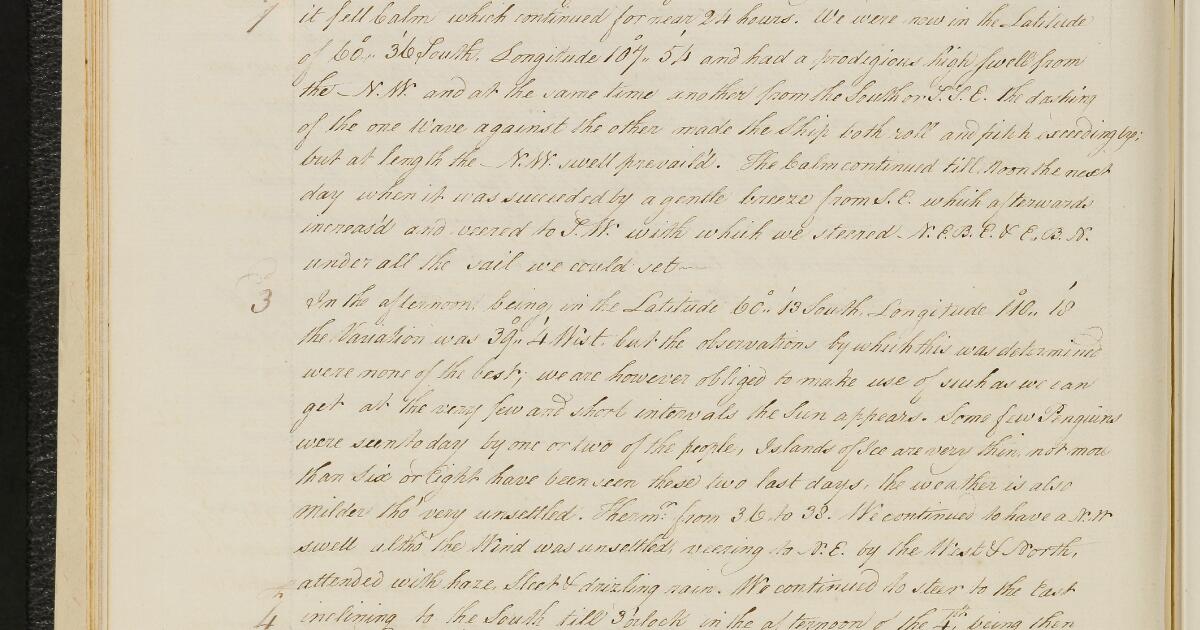 1 it fell Calm which continued for near 24 hours. We were now in the Latitude
of 60°.. 36' South. Longitude 107°.. 54' and had a prodigious high swell from
the N.W. and at the same time another from the South or S.S.E. the dashing
of the one Wave against the other made the Ship both roll and pitch exceedingly;
but at length the N.W. swell prevail'd. The Calm continued till Noon the next
day when it was succeeded by a gentle breeze from S.E. which afterwards
increas'd and veered to S.W. with which we steered N.E.B.E. & E.B.N.
under all the sail we could set
3 In the afternoon being in the Latitude 60°.. 13' South. Longitude 110°.. 18'
the Variation was 39°.. 4' West. but the observations by which this was determined
were none of the best; we are however obliged to make use of such as we can
get at the very few and short intervals the Sun appears. Some few Penguins
were seen to day by one or two of the people, Islands of Ice are very thin, not more
than Six or Eight have been seen these two last days, the weather is also
milder tho' very unsettled. Thermr. from 36 to 38. We continued to have a N.W
swell altho' the Wind was unsettled, veering to N.E. by the West & North,
attended with haze, Sleet & drizling rain. We continued to steer to the East
4 inclining to the South till 3 oclock in the afternoon of the 4th. being then